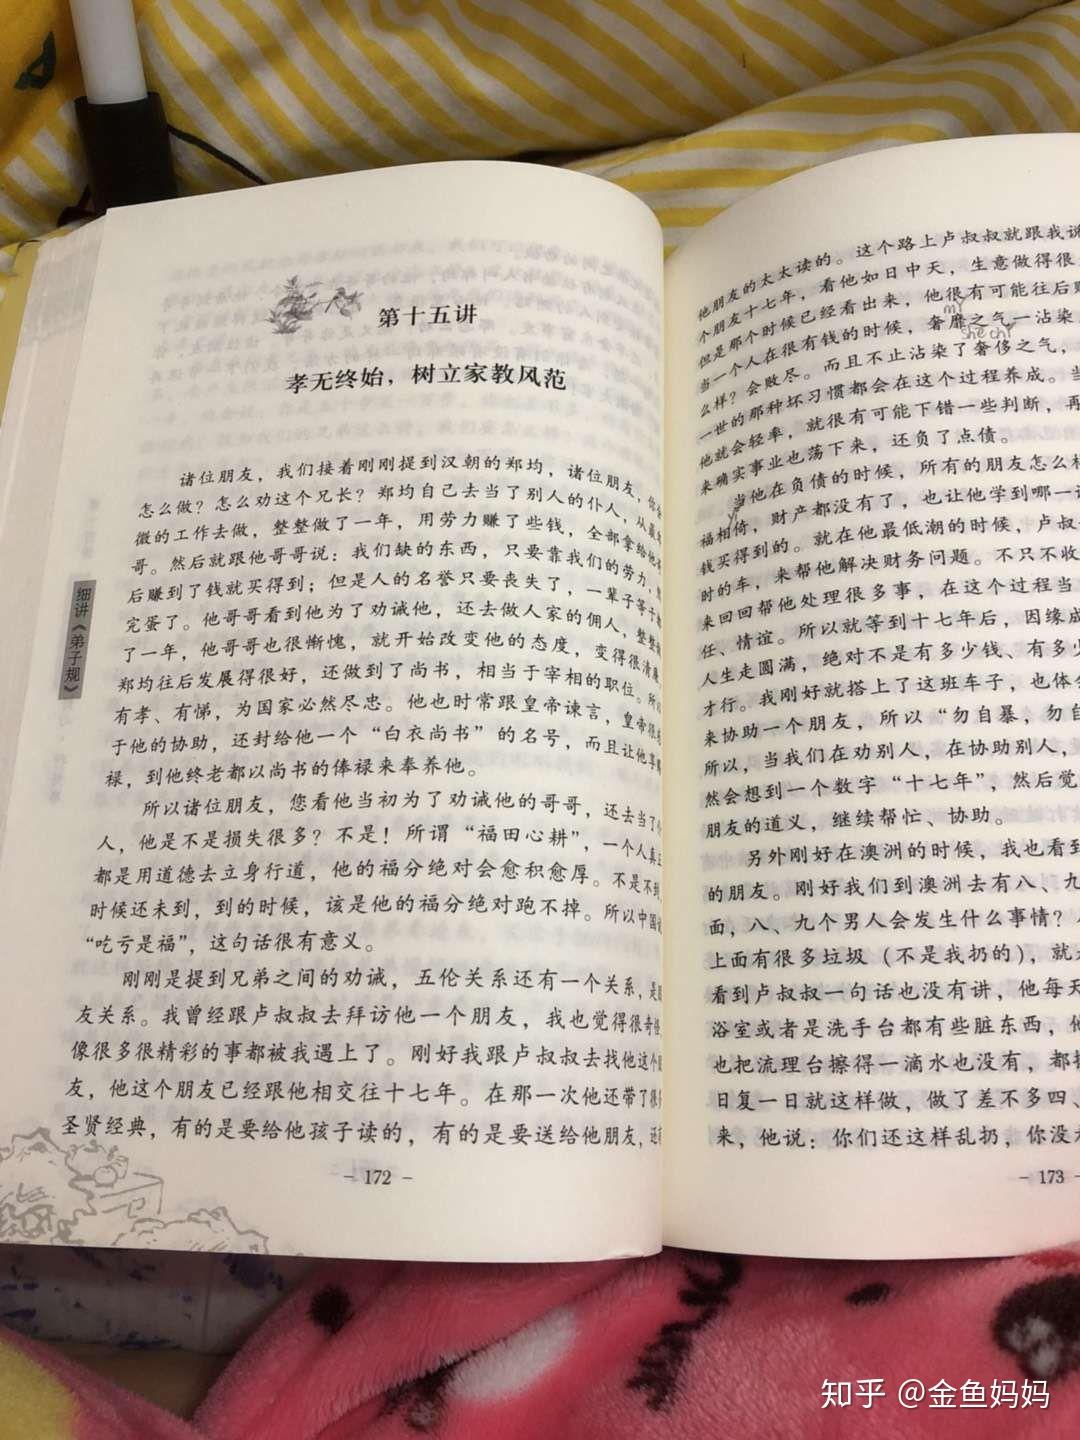 第十五讲
孝无终始，树立家教风范
诸位朋友，我们接着刚刚提到汉朝的郑均，诸位朋友，你会
怎么做？怎么劝这个兄长？郑均自己去当了别人的仆人，从最卑
微的工作去做，整整做了一年，用劳力赚了些钱，全部拿给他哥
哥。然后就跟他哥哥说：我们缺的东西，只要靠我们的劳力，
后赚到了钱就买得到；但是人的名誉只要丧失了，一辈子等于都
完蛋了。他哥哥看到他为了劝诫他，还去做人家的佣人，整整做
了一年，他哥哥也很惭愧，就开始改变他的态度，变得很清廉。
郑均往后发展得很好，还做到了尚书，相当于宰相的职位。所以
有孝、有悌，为国家必然尽忠。他也时常跟皇帝谏言，皇帝很
于他的协助，还封给他一个“白衣尚书”的名号，而且让他享
禄，到他终老都以尚书的俸禄来奉养他。
所以诸位朋友，您看他当初为了劝诫他的哥哥，还去当了仆
人，他是不是损失很多？不是！所谓“福田心耕”，一个人真正
都是用道德去立身行道，他的福分绝对会愈积愈厚。不是不到，
时候还未到，到的时候，该是他的福分绝对跑不掉。所以中国
“吃亏是福”，这句话很有意义。
刚刚是提到兄弟之间的劝诫，五伦关系还有一个关系，是朋
友关系。我曾经跟卢叔叔去拜访他一个朋友，我也觉得很奇怪
像很多很精彩的事都被我遇上了。刚好我跟卢叔叔去找他这个朋
友，他这个朋友已经跟他相交往十七年。在那一次他还带了很
圣贤经典，有的是要给他孩子读的，有的是要送给他朋友，还有
- 172 -
细讲《弟子规》
他朋友的太太读的。这个路上卢叔叔就跟我说
个朋友十七年，看他如日中天，生意做得很
但是那个时候已经看出来，他很有可能往后
mǐ
当一个人在很有钱的时候，奢靡之气一沾染
shē chǐ
么样？会败尽。而且不止沾染了奢侈之气，
一世的那种坏习惯都会在这个过程养成。当
他就会轻率，就很有可能下错一些判断，再
来确实事业也荡下来，还负了点债。
当他在负债的时候，所有的朋友怎么样
yǐ
福相倚，财产都没有了，也让他学到哪一
钱买得到的。就在他最低潮的时候，卢叔
时的车，来帮他解决财务问题。不只不收
来回回帮他处理很多事，在这个过程当
任、情谊。所以就等到十七年后，因缘成
人生走圆满，绝对不是有多少钱、有多少
才行。我刚好就搭上了这班车子，也体会
来协助一个朋友，所以“勿自暴，勿自
所以，当我们在劝别人，在协助别人，
然会想到一个数字“十七年”，然后觉
朋友的道义，继续帮忙、协助。
另外刚好在澳洲的时候，我也看到
的朋友。刚好我们到澳洲去有八、九
面，八、九个男人会发生什么事情？
上面有很多垃圾（不是我扔的），就
看到卢叔叔一句话也没有讲，他每天
浴室或者是洗手台都有些脏东西，他
也把流理台擦得一滴水也没有，都
日复一日就这样做，做了差不多四、
来，他说：你们还这样乱扔，你没
- 173 -
知乎 @金鱼妈妈